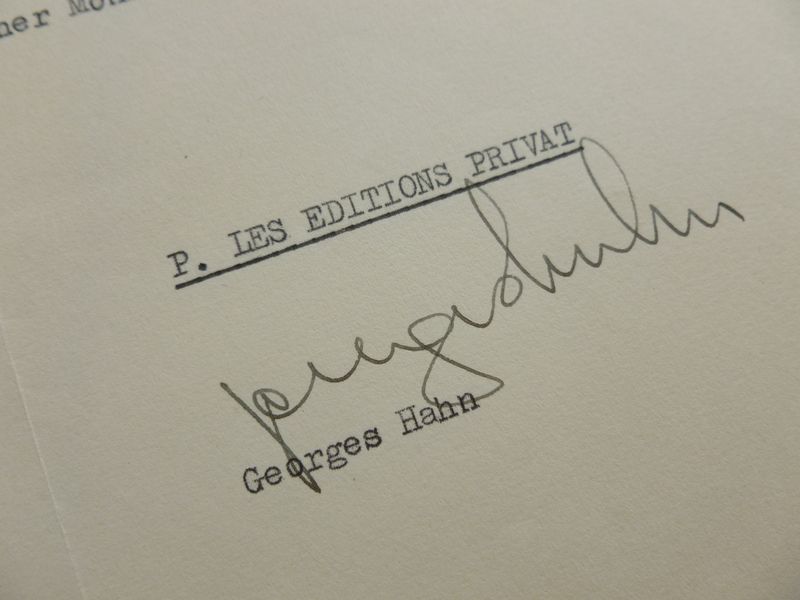 P. LES EDITIONS PRIVAT
Georges Hahn